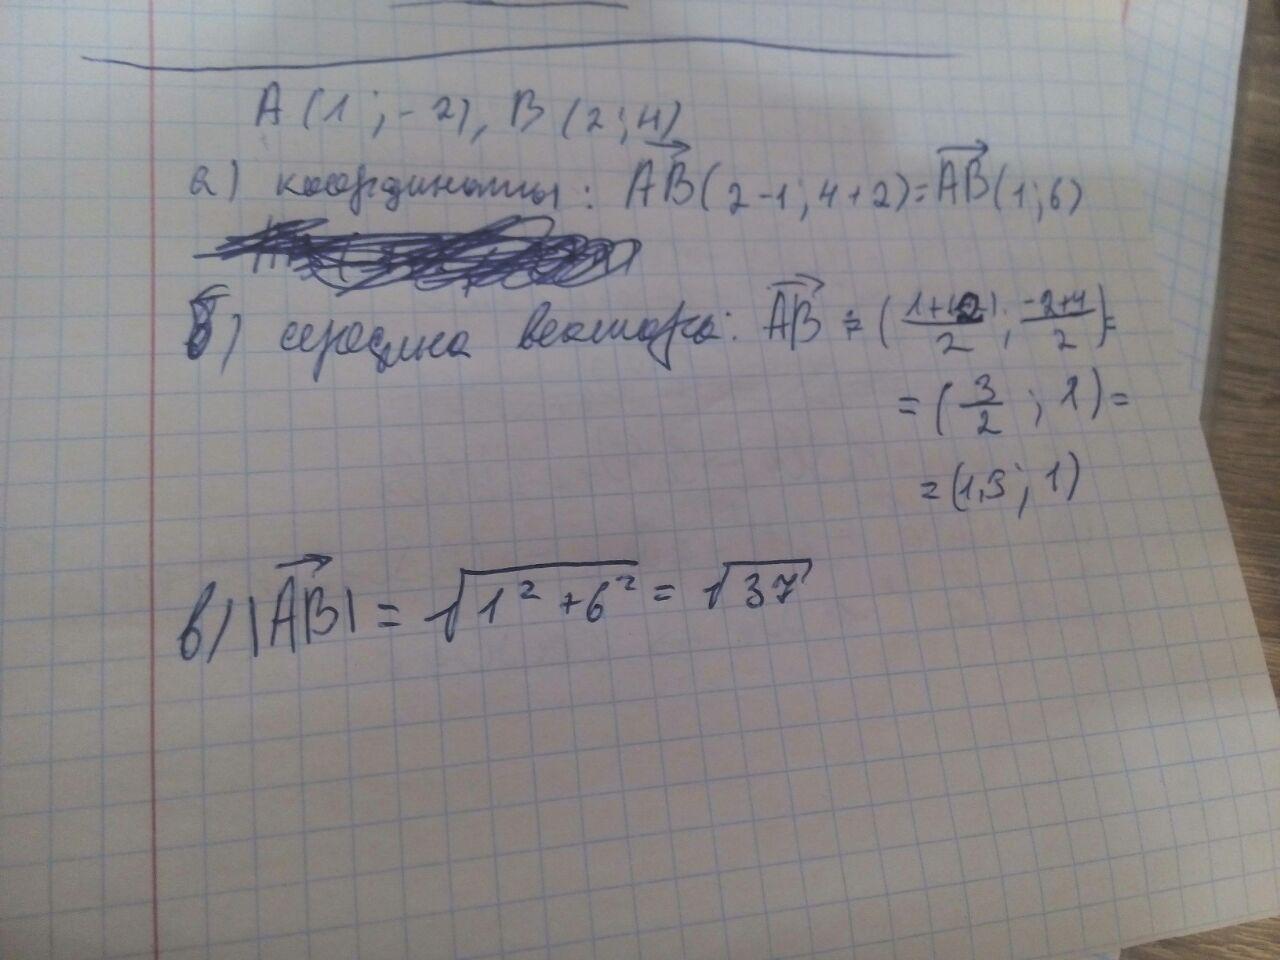 A (1 ; - 2), B (2 ; 4)
а) координаты: AB (2 - 1 ; 4 + 2) = AB (1 ; 6)
б) середина вектора: AB = (1+2/2 ; -2+4/2) =
= (3/2 ; 1) =
= (1,5 ; 1)
в) |AB| = √1² + 6² = √37